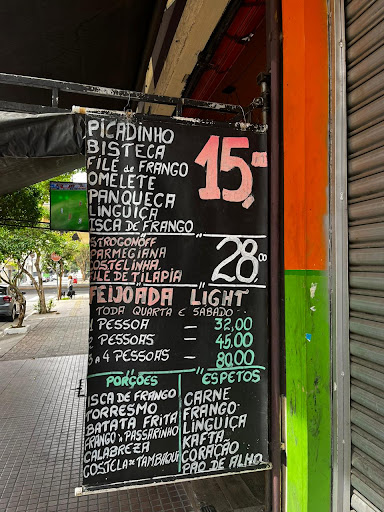 PICADINHO
BISTECA
FILÉ de FRANGO
OMELETE
PANQUECA
LINGUIÇA
ISCA DE FRANGO
15,-
STROGONOFF
PARMEGIANA
COSTELINHA
FILE DE TILÁPIA
28,00
FEIJOADA LIGHT
TODA QUARTA E SÁBADO
1 PESSOA = 32,00
2 PESSOAS = 45,00
3 a 4 PESSOAS = 80,00
PORÇÕES
ISCA DE FRANGO
TORRESMO
BATATA FRITA
FRANGO à PASSARINHO
CALABREZA
COSTELA de TAMBAQUI
ESPETOS
CARNE
FRANGO
LINGUIÇA
KAFTA
CORAÇÃO
PÃO DE ALHO